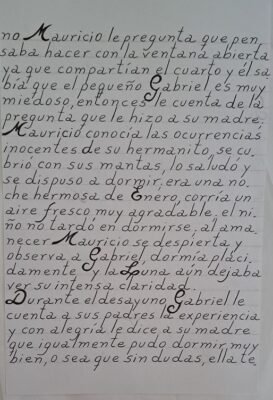 no Mauricio le pregunta que pen
saba hacer con la ventana abierta
ya que compartían el cuarto y él sa
bía que el pequeño Gabriel, es muy
miedoso, entonces le cuenta de la
pregunta que le hizo a su madre.
Mauricio conocía las ocurrencias
inocentes de su hermanito, se cu
brió con sus mantas, lo saludó y
se dispuso a dormir, era una no
che hermosa de Enero, corría un
aire fresco muy agradable. el ni
ño no tardó en dormirse, al ama
necer Mauricio se despierta y
observa a Gabriel, dormía pláci
damente y la Luna aún dejaba
ver su intensa claridad.
Durante el desayuno Gabriel le
cuenta a sus padres la experiencia
y con alegría le dice a su madre
que igualmente pudo dormir muy
bien, o sea que sin dudas, ella te